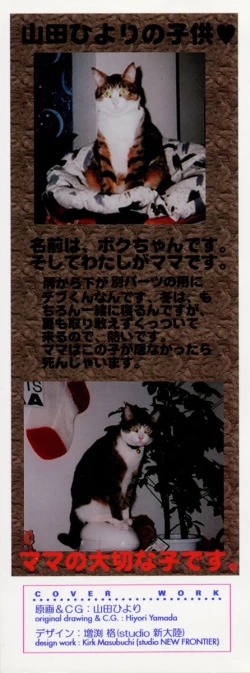 山田ひよりの子供♥
名前は、ボクちゃんです。
そしてわたしがママです。
肩から下が別パーツの用に
デブくんなんです。冬は、も
ちろん一緒に寝るんですが、
夏も取り敢えずくっついて
来るので、熱いです。
ママはこの子が居なかったら
死んじゃいます。
ママの大切な子です。
COVER WORK
原画&CG:山田ひより
original drawing & C.G. : Hiyori Yamada
デザイン:増渕 格(studio 新大陸)
design work : Kirk Masubuchi (studio NEW FRONTIER)